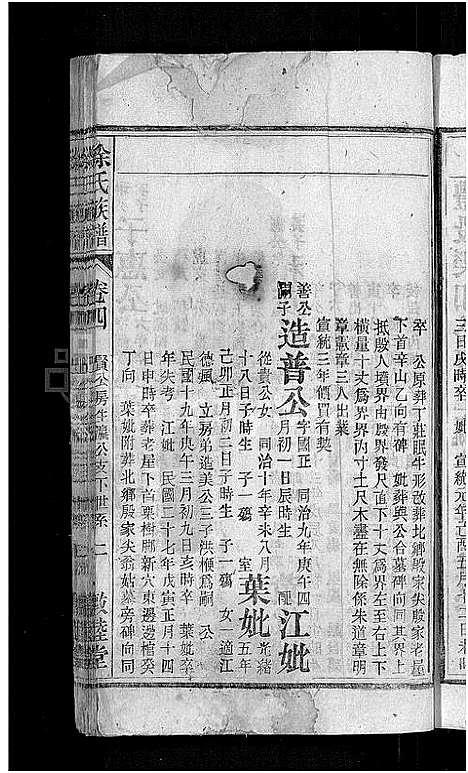 卒 公原葬丁莊眠牛形改葬北鄉殷家尖殷家老屋
下首辛山乙向有碑 妣葬與公合墓碑向同其界上
抵殷人墳界由殷界發尺直下十丈爲界左至右上下
橫量十丈爲界界內寸土尺木盡在無除係朱道章明
章憲章三人出業
宣統三年價買有契
善公
嗣子
造普公
字國正 同治九年庚午四
月初一日辰時生
江妣
從貴公女 同治十年辛未八月
十八日子時生 子一殤 室
葉妣
光緒五年
己卯正月初二日子時生 子一殤 女一適江
德風 立房弟造美公三子洪順爲嗣 公
民國十九年庚午三月初九日亥時卒 葉妣卒
年失考 江妣 民國二十七年戊寅正月十四
日申時卒葬老屋下首栗樹脚新穴東邊邊棺癸
丁向 葉妣附葬北鄉殷家尖翁姑墓旁碑向同
徐氏族譜
卷四
賢公房
公支下世系
二
敦睦堂